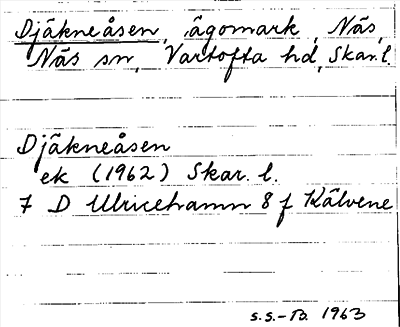 Djäkneåsen, ägomark, Näs,
Näs sn, Vartofta hd, Skar. l.
Djäkneåsen
ek (1962) Skar. l.
7 D Ulricehamn 8 f Kälvene
S.S.-Bo. 1963